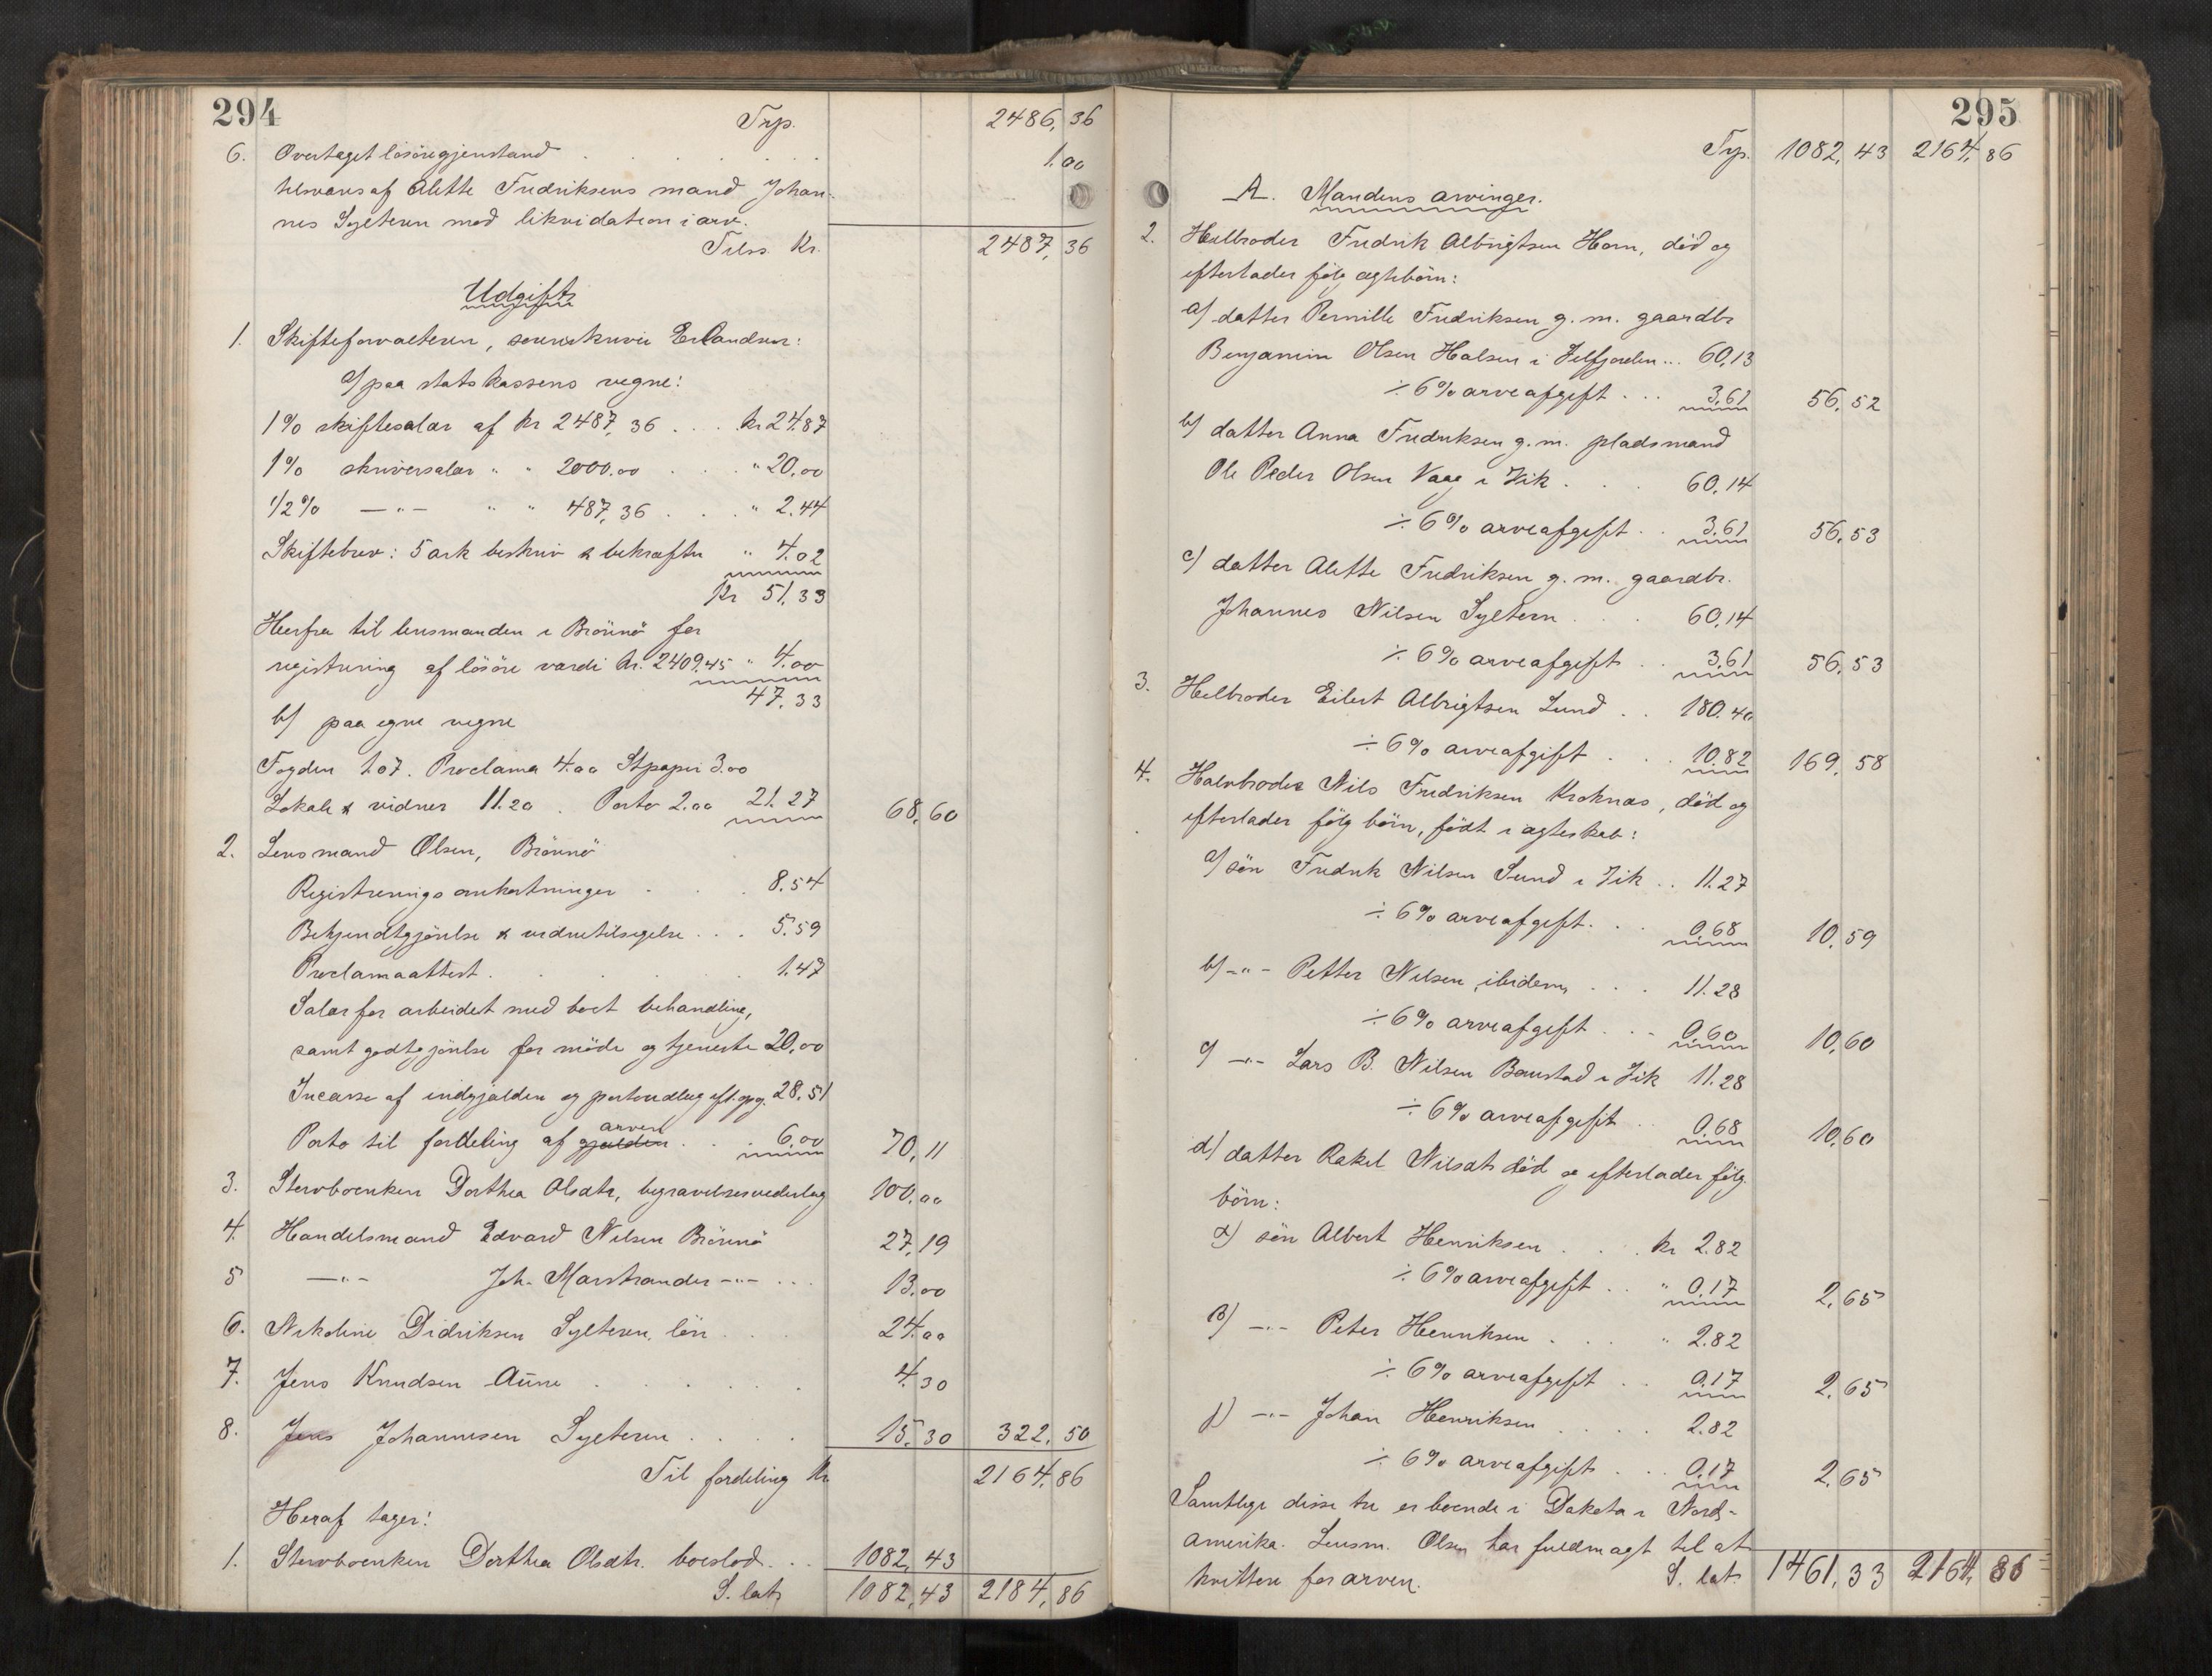 294
Trp. 2486,36
6. Overtaget lösöregjenstand . . . . . . 1.00
tilsvares af Alette Fredriksens mand Johan-
nes Sylteren med likvidation i arv.
Tilss. Kr. 2487,36
Udgift
1. Skifteforvalteren, sorenskriver Erlandsen:
a) paa statskassens vegne:
1% skiftesalær af kr 2487,36 . . . kr 24.87
1% skriversalær " " 2000.00 . . . " 20.00
1/2% —"— " " 487,36 . . . " 2.44
Skiftebrev: 5 ark beskriv & bekræfte " 4.02
Kr 51,33
Herfra til lensmanden i Brönnö for
registrering af lösöre værdi kr. 2409.45 " 4.00
47.33
b) paa egne vegne
Fogden 1.07. Proclama 4.00 Stpapir 3.00
Lokale & vidner 11.20. Porto 2.00 21.27 68,60
2. Lensmand Olsen, Brönnö
Registreringsomkostninger . . . 8.54
Bekjendtgjörelse & vidnetilsigelse . . . 5.59
Proclamaattest . . . . . 1.47
Salær for arbeidet med boet behandling,
samt godtgjörelse for möde og tjeneste 20,00
Incasso af indgjælden og portoudlæg eft. opg. 28.51
Porto til fordeling af gjælden arven . . . 6.00 70,11
3. Stervboenken Dorthea Olsdtr, begravelsesvederlag 100.00
4. Handelsmand Edvard Nilsen Brönnö 27,19
5 —"— Joh. Marstrander —"— . . . 13.00
6. Nikoline Didriksen Sylteren, lön . . . 24.00
7. Jens Knudsen Aune . . . . . . 4.30
8. Jens Johannesen Sylteren . . . . 15.30 322.50
Til fordeling Kr 2164.86
Heraf tager:
1. Stervboenken Dorthea Olsdtr. boeslod . . . 1082,43
S. lat. 1082,43 2184,86
295
Trp. 1082,43 2164,86
A. Mandens arvinger.
2. Helbroder Fredrik Albrigtsen Horn, död og
efterlader fölg ægtebörn:
a) datter Pernille Fredriksen g. m. gaardbr
Benjamin Olsen Halsen i Velfjorden ... 60,13
÷ 6% arveafgift . . . 3.61 56,52
b) datter Anna Fredriksen g. m. pladsmand
Ole Peder Olsen Vaag i Vik . . . 60,14
÷ 6% arveafgift . . 3.61 56,53
c) datter Alette Fredriksen g. m. gaardbr.
Johannes Nilsen Syltern . . . 60,14
÷ 6% arveafgift . . 3.61 56,53
3. Helbroder Eilert Albrigtsen Lund . . 180.40
÷ 6% arveafgift . . . 10.82 169,58
4. Halvbroder Nils Fredriksen Kroknæs, död og
efterlader fölg börn, födt i ægteskab:
a) sön Fredrik Nilsen Sund i Vik . . 11.27
÷ 6% arveafgift . . . 0.68 10,59
b) —"— Petter Nilsen, ibidem, . . . 11.28
÷ 6% arveafgift . . . 0.60 10,60
c) —"— Lars B. Nilsen Baustad i Vik 11.28
÷ 6% arveafgift . . 0.68 10,60
d) datter Rakel Nilsdtr död og efterlader fölg.
börn:
α) sön Albert Henriksen . . . kr 2.82
÷ 6% arveafgift . . " 0.17 2,65
β) —"— Peter Henriksen . . . " 2.82
÷ 6% arveafgift . . 0.17 2,65
γ) —"— Johan Henriksen . . . . 2.82
÷ 6% arveafgift . . . 0.17 2,65
Samtlige disse tre er boende i Dakota i Nord-
amerika. Lensm. Olsen har fuldmagt til at
kvittere for arven. S. lat. 1461,33 2164,86